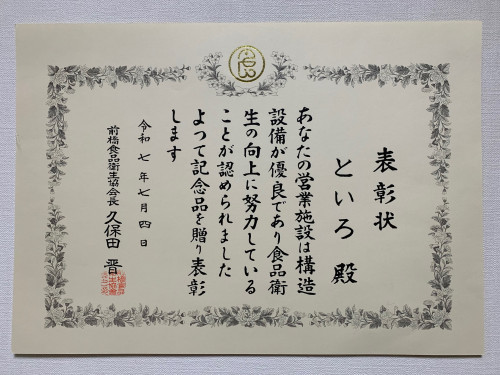 表彰状
といろ 殿
あなたの営業施設は構造
設備が優良であり食品衛
生の向上に努力している
ことが認められました
よって記念品を贈り表彰
します
令和七年七月四日
前橋食品衛生協会長 久保田 晋